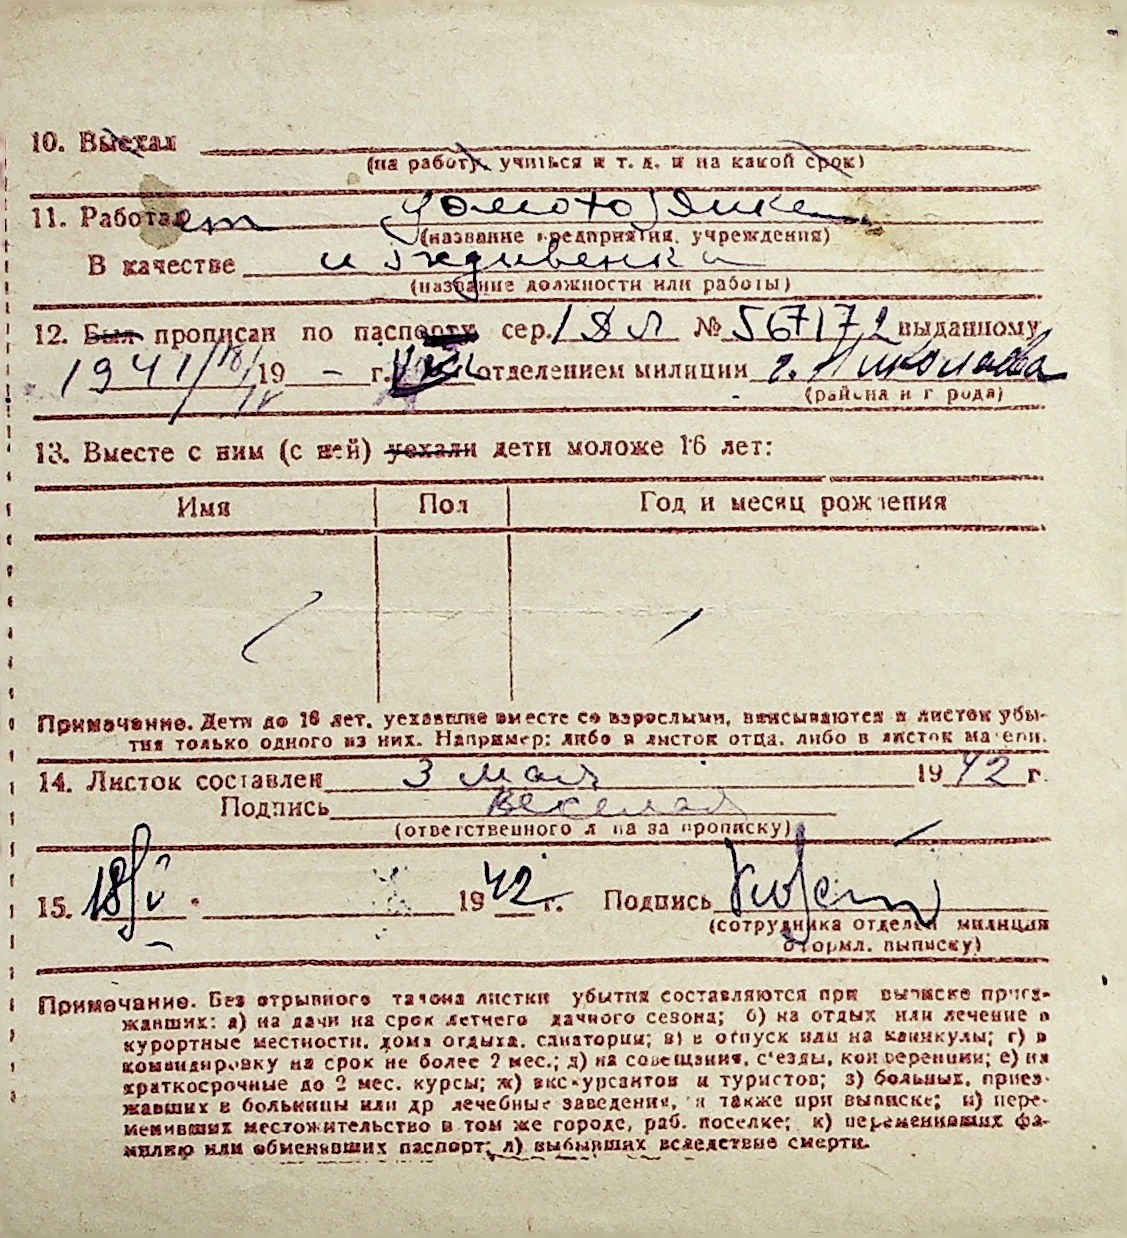 10. Выехал
(на работу, учиться и т. д. и на какой срок)
11. Работает домохозяйка
(название предприятия, учреждения)
В качестве иждивенка
(название должности или работы)
12. Был прописан по паспорту сер. № 567172 выданному
1941/18/IV 19 – г. отделением милиции г. Николаева
(района и города)
13. Вместе с ним (с ней) уехали дети моложе 16 лет:
Имя Пол Год и месяц рождения
Примечание. Дети до 16 лет, уехавшие вместе со взрослыми, вписываются в листок убы-
тия только одного из них. Например: либо в листок отца, либо в листок матери.
14. Листок составлен 3 мая 1942 г.
Подпись Веселая
(ответственного лица за прописку)
15. 18/V 1942 г. Подпись
(сотрудника отделен милиции
оформл. выписку)
Примечание. Без отрывного талона листки убытия составляются при выписке приез-
жавших: а) на дачи на срок летнего дачного сезона; б) на отдых или лечение в
курортные местности, дома отдыха, санатории; в) в отпуск или на каникулы; г) в
командировку на срок не более 2 мес.; д) на совещания, с'езды, конференции; е) на
краткосрочные до 2 мес. курсы; ж) экскурсантов и туристов; з) больных, приез-
жавших в больницы или др лечебные заведения, а также при выписке; и) пере-
менивших местожительство в том же городе, раб. поселке; к) переменивших фа-
милию или обменявших паспорт; л) выбывших вследствие смерти.